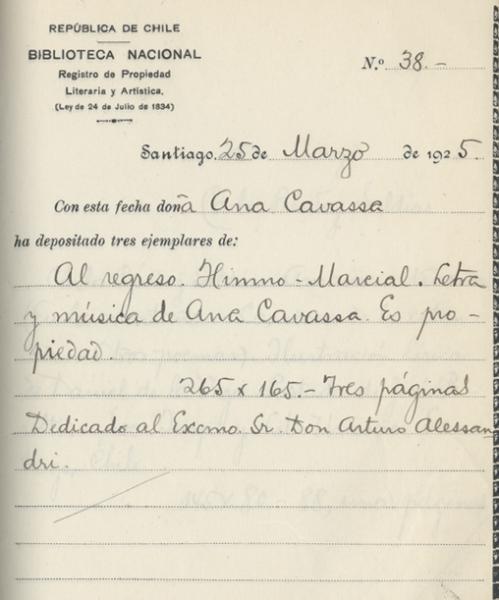 REPÚBLICA DE CHILE
BIBLIOTECA NACIONAL
Registro de Propiedad
Literaria y Artística.
(Ley de 24 de Julio de 1834)
N.º 38.-
Santiago, 25 de Marzo de 1925.
Con esta fecha doña Ana Cavassa
ha depositado tres ejemplares de:
Al regreso. Himno-Marcial. Letra
y música de Ana Cavassa. Es pro-
piedad.
265 x 165.- Tres páginas
Dedicado al Excmo. Sr. Don Arturo Alessan-
dri.